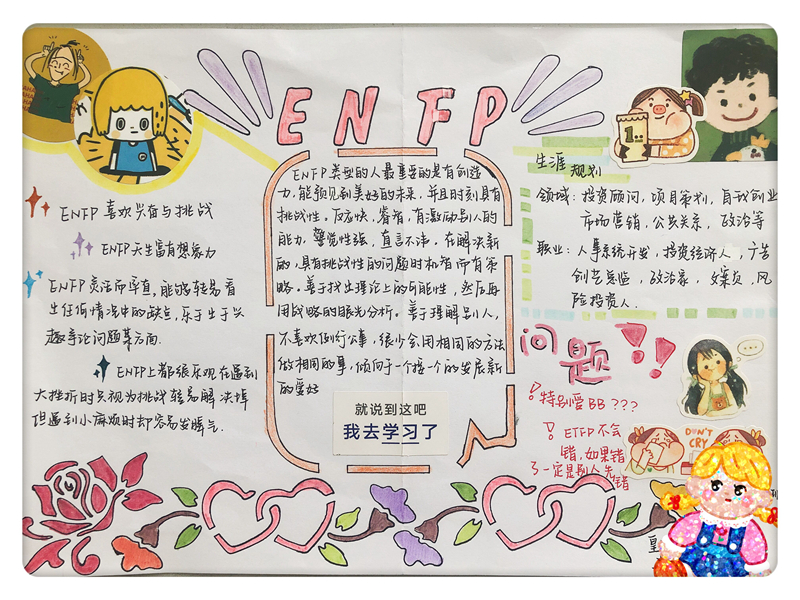 ENFP
ENFP 喜欢兴奋与挑战
ENFP天生富有想象力
ENFP 灵活而率直，能够轻易看
出任何情况中的缺点，乐于出于兴
趣争论问题某方面.
ENFP上都很乐观在遇到
大挫折时只视为挑战轻易解决掉
但遇到小麻烦时却容易发脾气.
ENFP类型的人最重要的是有创造
力，能预见到美好的未来，并且时刻具有
挑战性，反应快，睿智，有激励别人的
能力，警觉性强，直言不讳，在解决新
的，具有挑战性的问题时机智而有策
略。善于找出理论上的可能性，然后再
用战略的眼光分析。善于理解别人，
不喜欢例行公事，很少会用相同的方法
做相同的事，倾向于一个接一个的发展新
的爱好
就说到这吧
我去学习了
生涯
规划
领域：投资顾问，项目策划，自我创业
市场营销，公共关系，政治等
职业：人事系统开发，投资经济人，广告
创艺总监，政治家，文案员，风
险投资人.
问题?!!
特别爱BB ???
ETFP不会
错，如果错
了一定是别人先错
DON'T
CRY
皇